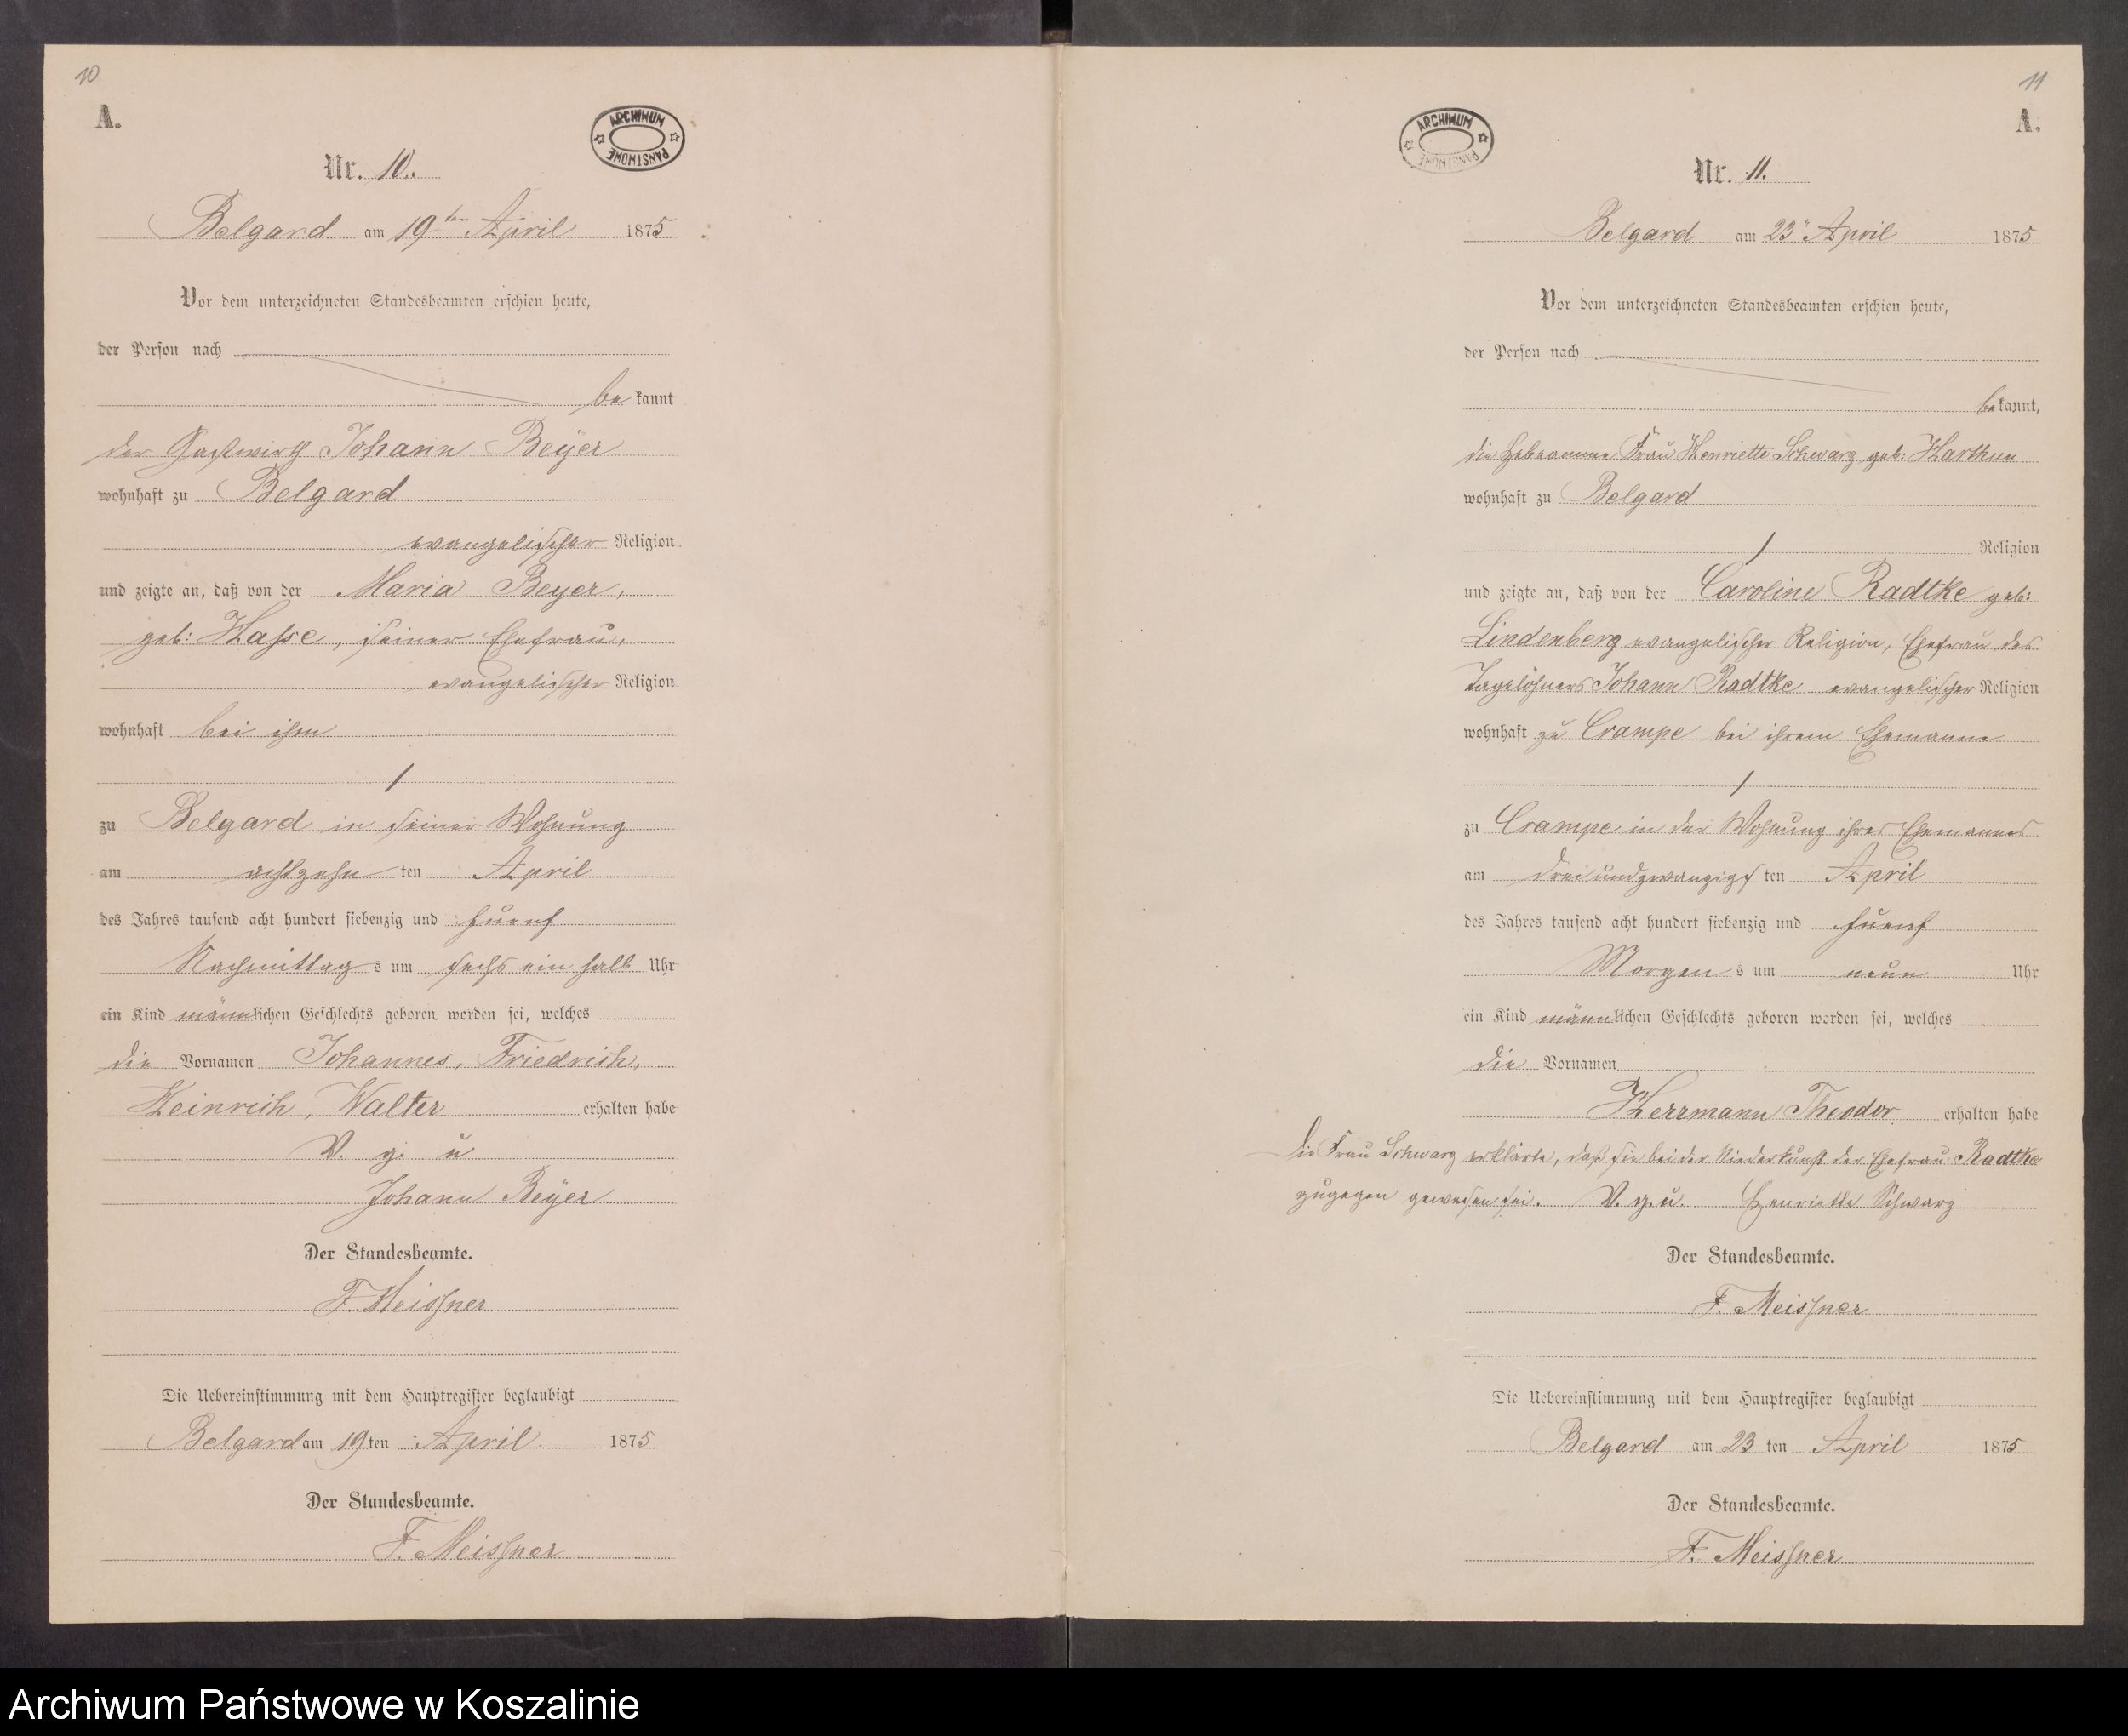 10
A.
ARCHIWUM PAŃSTWOWE
Nr. 10.
Belgard am 19ten April 1875
Vor dem unterzeichneten Standesbeamten erschien heute,
der Person nach
be kannt
der Gastwirth Johann Beyer
wohnhaft zu Belgard
evangelischer Religion
und zeigte an, daß von der Maria Beyer,
geb: Hasse, seiner Ehefrau,
evangelischer Religion
wohnhaft bei ihm
/
zu Belgard in seiner Wohnung
am achtzehn ten April
des Jahres tausend acht hundert siebenzig und fuenf
Nachmittag s um sechs ein halb Uhr
ein Kind männlichen Geschlechts geboren worden sei, welches
die Vornamen Johannes, Friedrich,
Heinrich, Walter erhalten habe
V. g. u
Johann Beyer
Der Standesbeamte.
F. Meissner
Die Uebereinstimmung mit dem Hauptregister beglaubigt
Belgard am 19 ten April 1875
Der Standesbeamte.
F. Meissner
11
A.
ARCHIWUM PAŃSTWOWE
Nr. 11.
Belgard am 23. April 1875
Vor dem unterzeichneten Standesbeamten erschien heute,
der Person nach
bekannt,
die Hebeamme Frau Henriette Schwarz geb: Harthun
wohnhaft zu Belgard
/ Religion
und zeigte an, daß von der Caroline Radtke geb:
Lindenberg evangelischer Religion, Ehefrau des
Tagelöhners Johann Radtke evangelischer Religion
wohnhaft zu Crampe bei ihrem Ehemanne
/
zu Crampe in der Wohnung ihres Ehemannes
am dreiundzwanzigs ten April
des Jahres tausend acht hundert siebenzig und fuenf
Morgen s um neun Uhr
ein Kind männlichen Geschlechts geboren worden sei, welches
die Vornamen
Herrmann Theodor erhalten habe
Die Frau Schwarz erklärte, daß sie bei der Niederkunft der Ehefrau Radtke
zugegen gewesen sei. V. g. u. Henriette Schwarz
Der Standesbeamte.
F. Meissner
Die Uebereinstimmung mit dem Hauptregister beglaubigt
Belgard am 23 ten April 1875
Der Standesbeamte.
F. Meissner
Archiwum Państwowe w Koszalinie